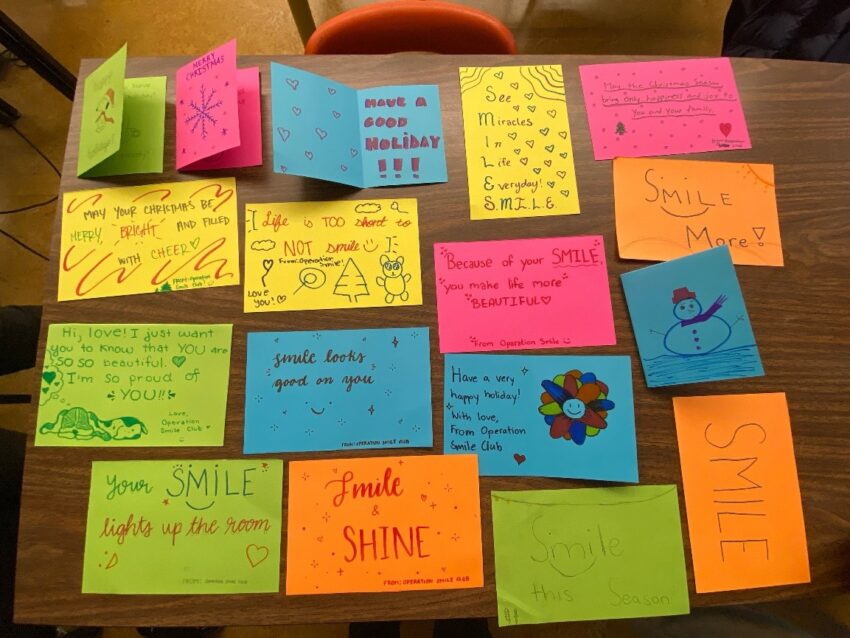 MERRY
CHRISTMAS
HAVE A
GOOD
HOLIDAY
!!!
See
Miracles
In
Life
Everyday!
S.M.I.L.E.
May the Christmas Season
bring only happiness and joy to
you and your family.
SMILE
More!
MAY YOUR CHRISTMAS BE
MERRY, BRIGHT AND FILLED
WITH CHEER♡
FROM: Operation
Smile Club
Life is TOO short to
NOT smile
From: Operation
Smile!
LOVE
YOU!♡
Because of your SMILE,
you make life more
BEAUTIFUL♡
From Operation Smile
Hi, love! I just want
you to know that YOU are
SO SO beautiful.
I'm so proud of
YOU!!
Love,
Operation
Smile Club
smile looks
good on you
FROM: OPERATION SMILE CLUB
Have a very
happy holiday!
With love,
From Operation
Smile Club
SMILE
Your SMILE
lights up the room
FROM: OPERATION SMILE CLUB
Smile
&
SHINE
FROM: OPERATION SMILE CLUB
Smile
this Season!